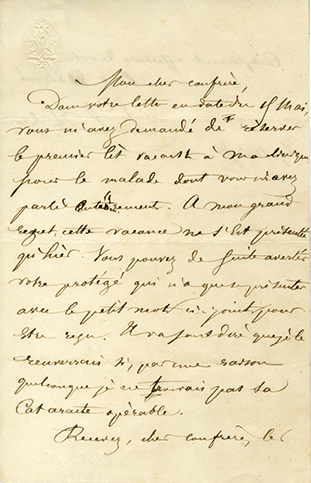 Mon cher confrère,
Dans votre lettre en date du 15 Mai,
vous m'avez demandé de réserver
le premier lit vacant à ma clinique
pour le malade dont vous m'avez
parlé antérieurement. A mon grand
regret, cette vacance ne s'est présentée
qu'hier. Vous pouvez de suite avertir
votre protégé qui n'a qu'à se présenter
avec le petit mot ci-joint pour
être reçu. Il va sans dire que je le
renverrais si, par une raison
quelconque je ne trouvais pas sa
Cataracte opérable.
Recevez, cher confrère, les